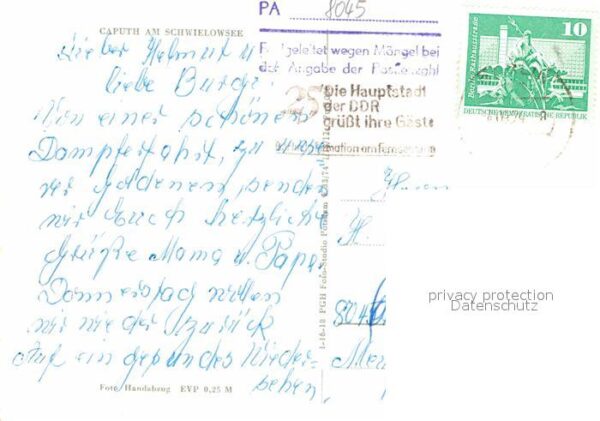 CAPUTH AM SCHWIELOWSEE
PA 8045
Fehlgeleitet wegen Mängel bei
der Angabe der Postleitzahl
10
Berlin, Rathausstraße
DEUTSCHE DEMOKRATISCHE REPUBLIK
25
Die Hauptstadt
der DDR
grüßt ihre Gäste
Information am Fernsehturm
Lieber Helmut u
liebe Burgi.
Von einer schönen
Dampferfahrt, zu unse
rer goldenen senden
wir Euch herzliche
Grüße Mama u. Papa.
Donnerstag wollen
wir wieder zurück
Auf ein gesundes Wieder-
sehen,
H
8045
privacy protection
Datenschutz
1-16-12 PGH Foto-Studio Potsdam
Foto Handabzug EVP 0,25 M